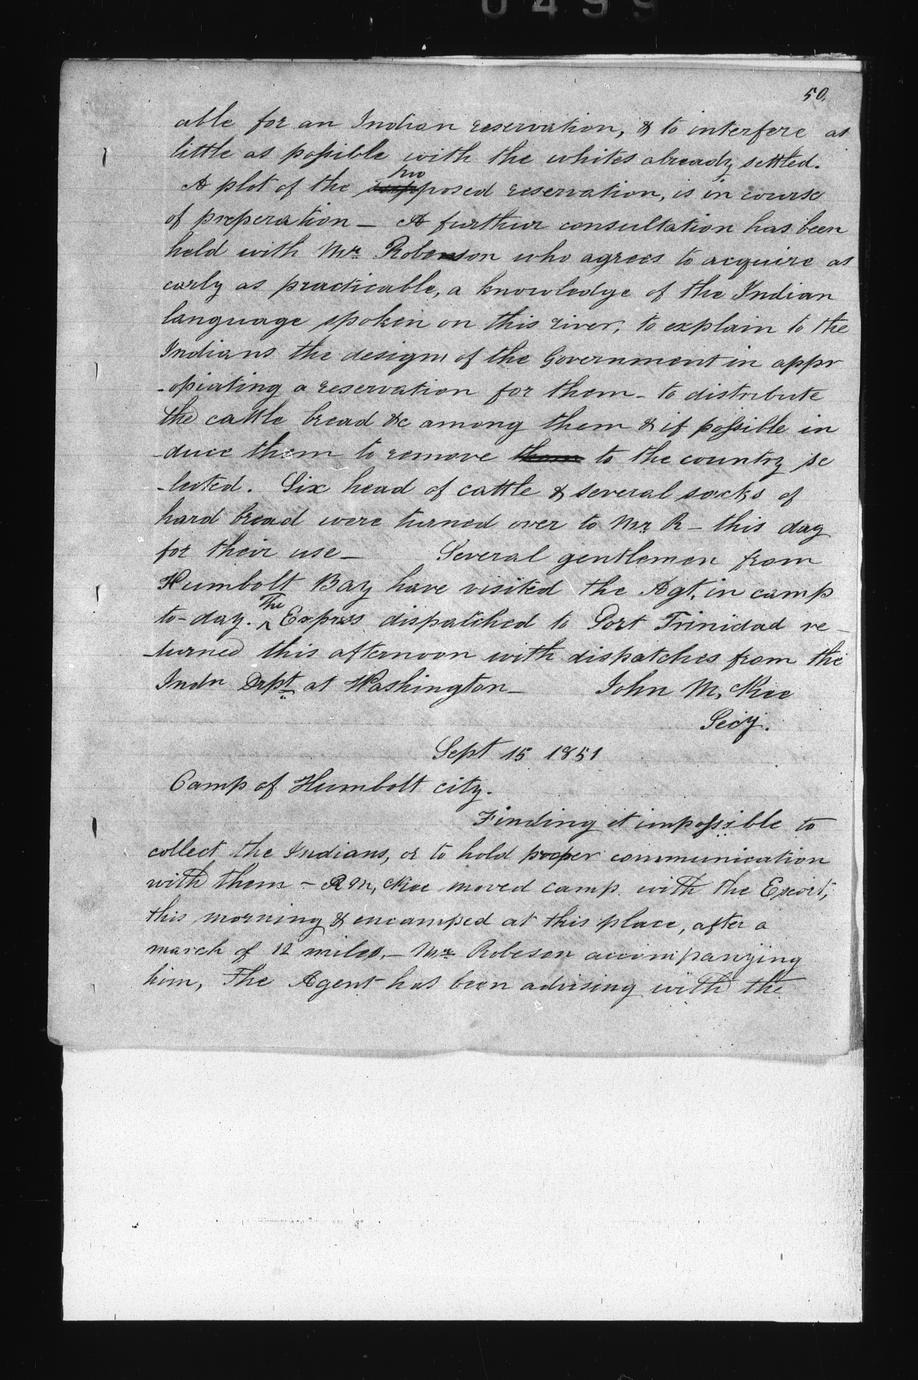 0499
50.
able for an Indian reservation, & to interfere as
little as possible with the whites already settled.
pro
A plot of the supposed reservation, is in course
of preperation – A further consultation has been
held with Mr. Robenson who agrees to acquire as
early as practicable, a knowledge of the Indian
language spoken on this river, to explain to the
Indians the designs of the Government in appr
-opiating a reservation for them – to distribute
the cattle bread &c among them & if possible in
-duce them to remove them to the country se
-lected. Six head of cattle & several sacks of
hard bread were turned over to Mr R – this day
for their use – Several gentlemen from
Humbolt Bay have visited the Agt. in camp
to-day. The Express dispatched to Port Trinidad re-
-turned this afternoon with dispatches from the
Indn Dept. at Washington – John M, Kee
Secy.
Sept 15 1851
Camp of Humbolt city.
Finding it impossible to
collect the Indians, or to hold proper communication
with them – R M, Kee moved camp with the Escort,
this morning & encamped at this place, after a
march of 12 miles, – Mr. Robeson accompanying
him, The Agent has been advising with the